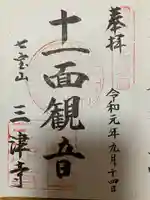 奉拝
令和元年九月十四日
十一面観音
七宝山
三津寺